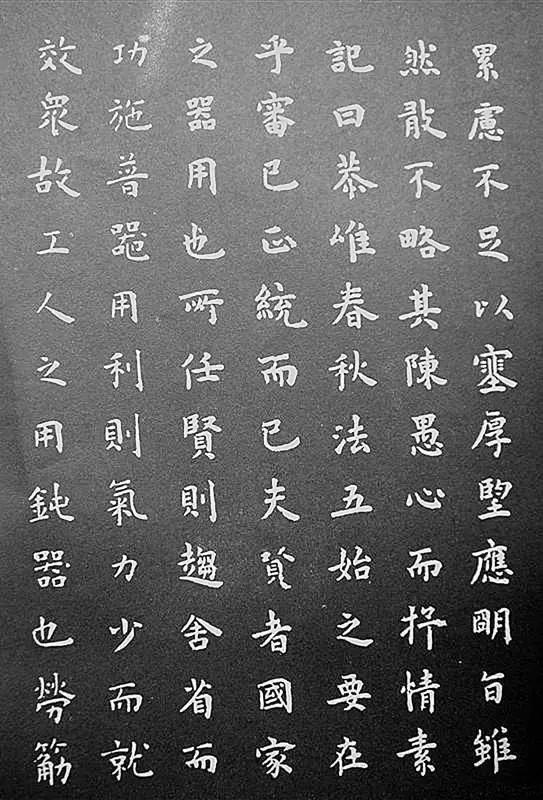 累慮不足以塞厚望應明旨雖
然敢不略其陳愚心而抒情素
記曰恭惟春秋法五始之要在
乎審己正統而已夫賢者國家
之器用也所任賢則趨舍省而
功施普器用利則氣力少而就
效眾故工人之用鈍器也勞筋